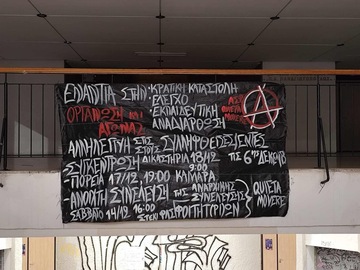 ΕΝΑΝΤΙΑ ΣΤΗΝ • ΚΡΑΤΙΚΗ ΚΑΤΑΣΤΟΛΗ
• ΕΛΕΓΧΟ
• ΕΚΠΑΙΔΕΥΤΙΚΗ
ΑΝΑΔΙΑΡΘΩΣΗ
ΟΡΓΑΝΩΣΗ ΚΑΙ
ΑΓΩΝΑΣ
ΑΛΛΗΛΕΓΓΥΗ ΣΤΙΣ ΣΥΛΛΗΦΘΕΙΣΕΣ/ΕΝΤΕΣ
ΤΗΣ 6ΗΣ ΔΕΚΕΜΒΡΗ
- ΣΥΓΚΕΝΤΡΩΣΗ ΔΙΚΑΣΤΗΡΙΑ 18/12
9:00
- ΠΟΡΕΙΑ 17/12, 19:00 ΚΑΜΑΡΑ
- ΑΝΟΙΧΤΗ ΣΥΝΕΛΕΥΣΗ ΤΗΣ ΑΝΑΡΧΙΚΗΣ
ΣΥΝΕΛΕΥΣΗΣ
QUIETA
MOVERE
ΣΑΒΒΑΤΟ 14/12 16:00
ΣΤΕΚΙ